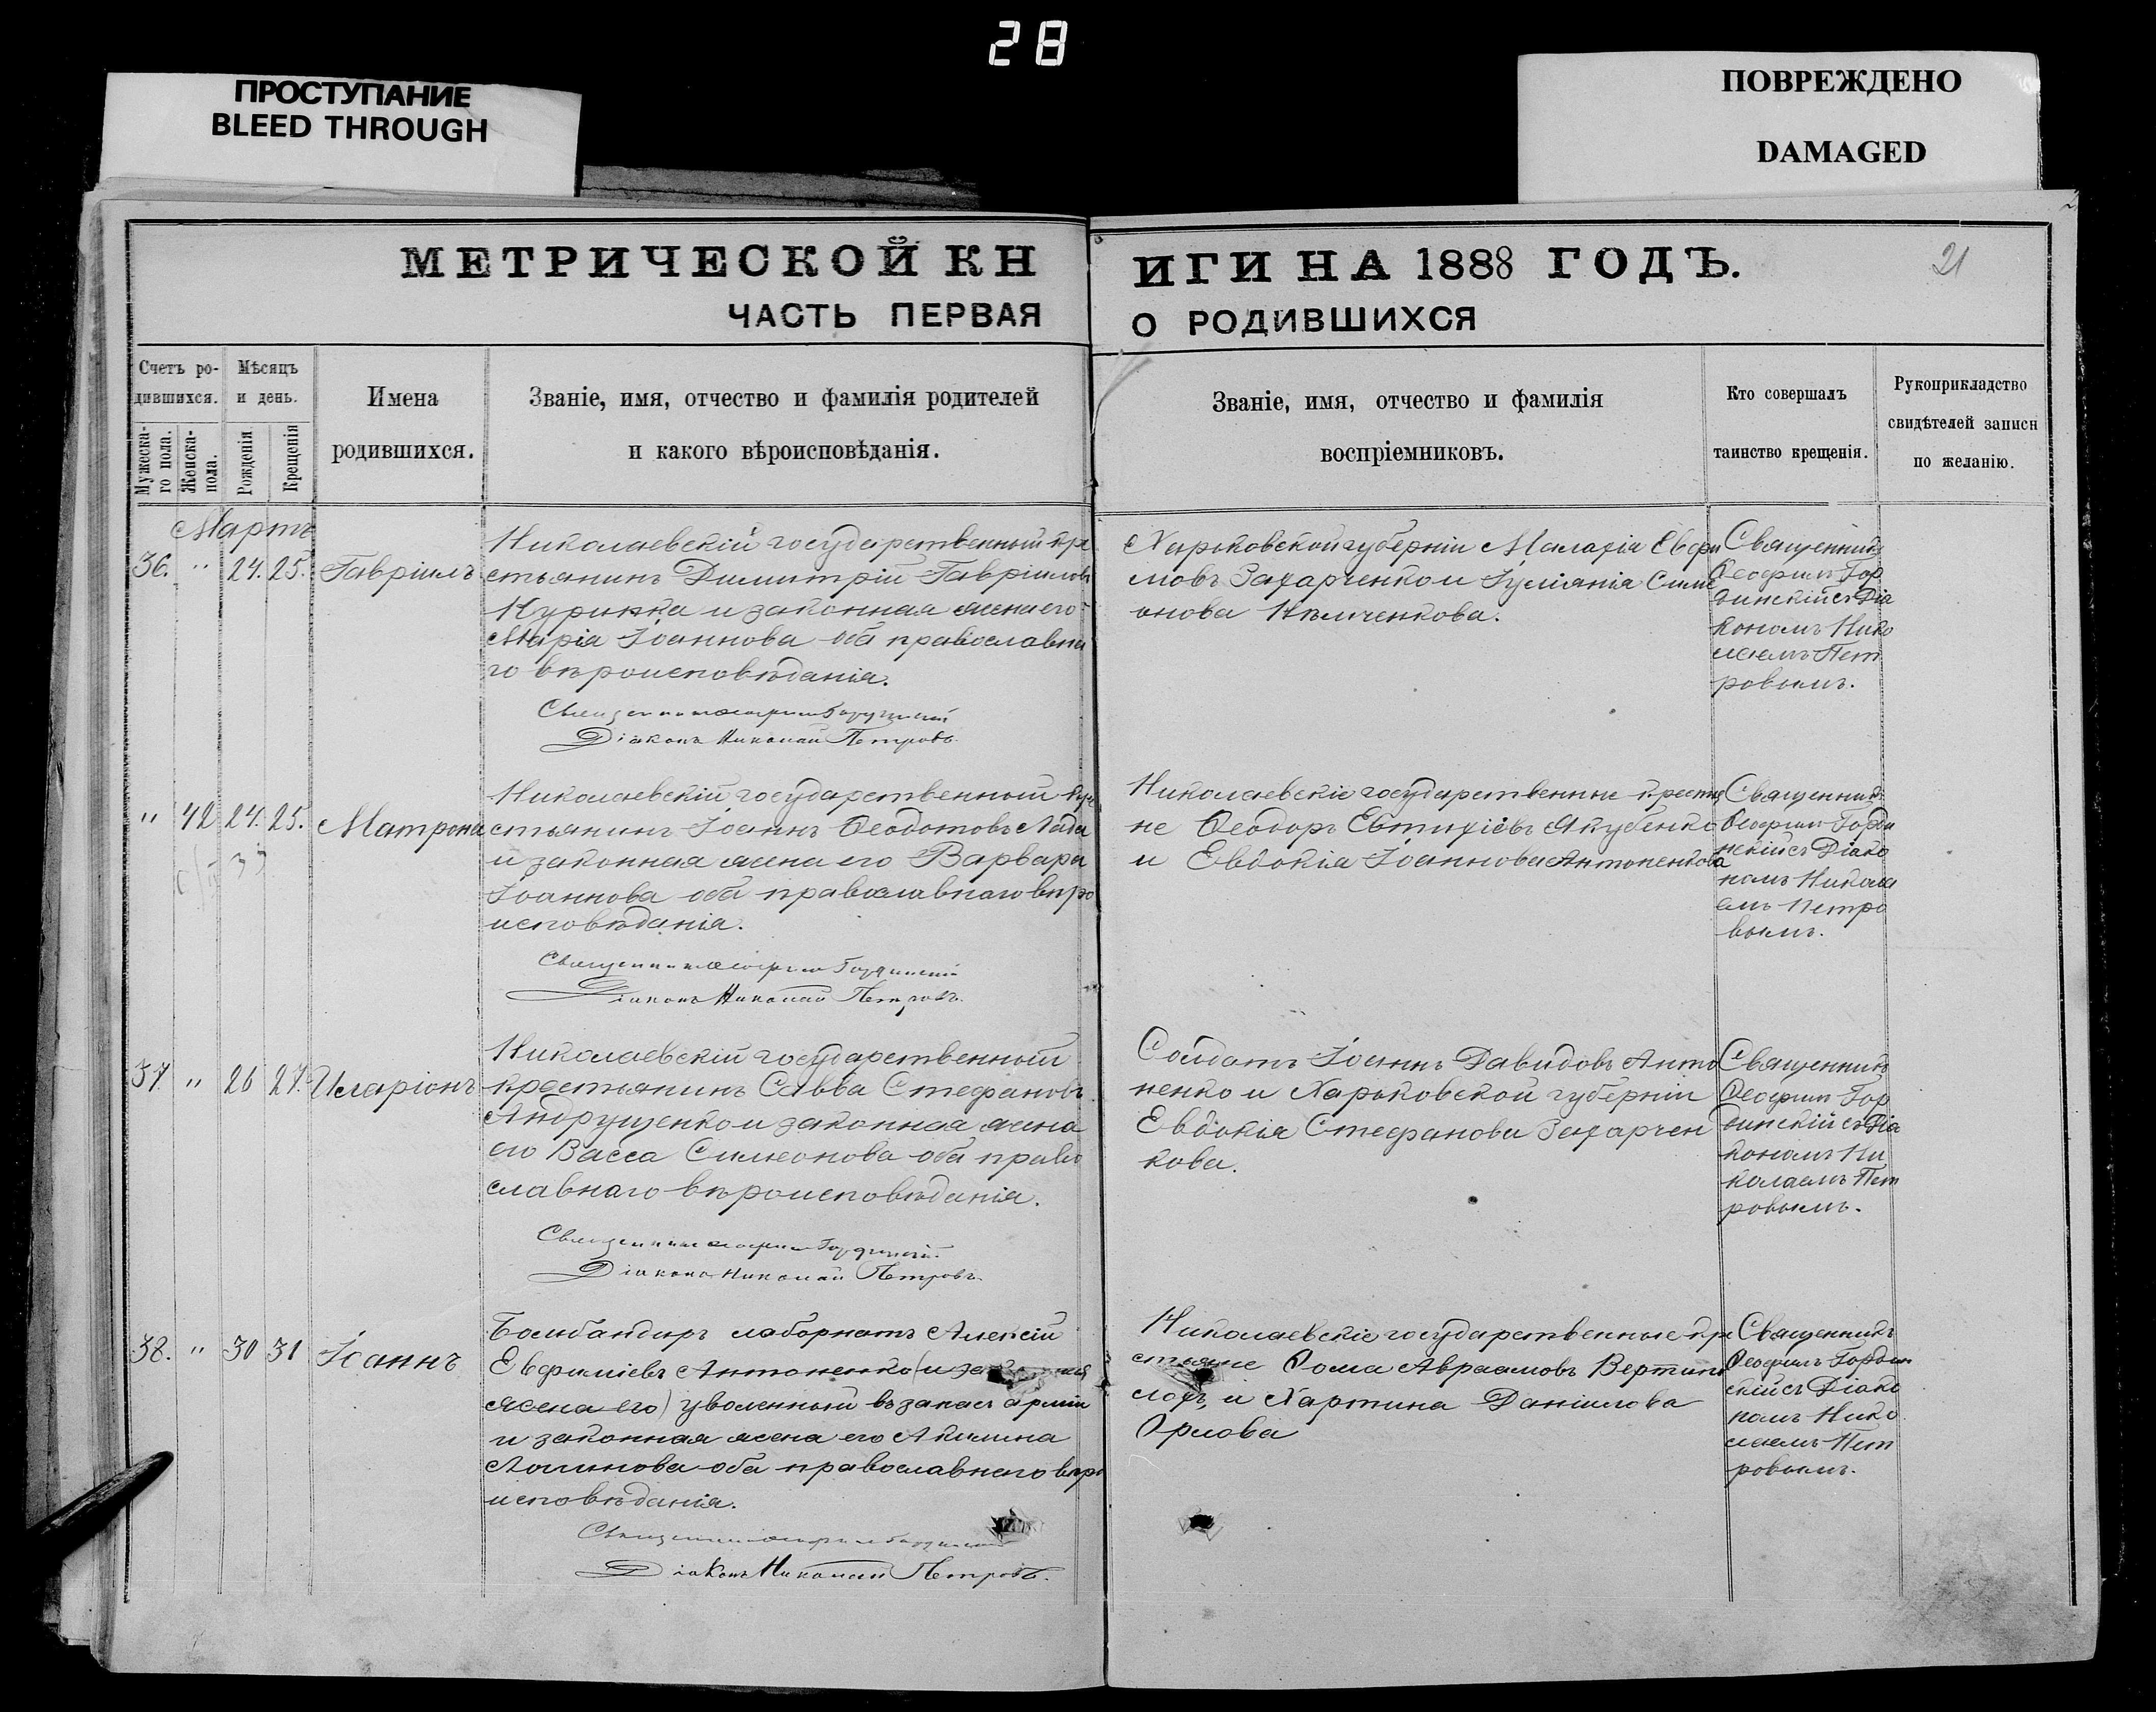 28
ПРОСТУПАНИЕ
BLEED THROUGH
ПОВРЕЖДЕНО
DAMAGED
МЕТРИЧЕСКОЙ КН
ИГИ НА 1888 ГОДЪ.
21
ЧАСТЬ ПЕРВАЯ
О РОДИВШИХСЯ
Счетъ ро-
дившихся.
Мужеска-
го пола.
Женска-
пола.
Мѣсяцъ
и день.
Рожденія
Крещенія
Имена
родившихся.
Званіе, имя, отчество и фамилія родителей
и какого вѣроисповѣданія.
Званіе, имя, отчество и фамилія
воспріемниковъ.
Кто совершалъ
таинство крещенія.
Рукоприкладство
свидѣтелей записи
по желанію.
Мартъ
36. " 24. 25. Гавріилъ
Николаевскій государственный кре
стьянинъ Димитрій Гавріиловъ
и законная жена его
Марія Іоаннова оба православна
го вѣроисповѣданія.
Діаконъ Николай Петровъ.
Харьковской губерніи
мовъ Захарченко и Симе
онова
Священникъ
Ѳеофилъ Гор
динскій съ Діа
кономъ Нико
лаемъ Пет
ровымъ.
" 42 24. 25. Матрона
Николаевскій государственный кре
стьянинъ Іоаннъ Ѳеодотовъ
и законная жена его Варвара
Іоаннова оба православнаго вѣро
исповѣданія.
Діаконъ Николай Петровъ.
Николаевскіе государственные крестья
не Ѳеодоръ Евтихіевъ Якубенко
и Евдокія Іоаннова Антоненкова
Священникъ
Ѳеофилъ Горди
нскій съ Діако
номъ Никола
емъ Петро
вымъ.
37. " 26 27. Иларіонъ
Николаевскій государственный
крестьянинъ Савва Стефановъ
Андрущенко и законная жена
его Васса Симеонова оба право
славнаго вѣроисповѣданія.
Діаконъ Николай Петровъ.
Солдатъ Іоаннъ Давидовъ Анто
ненко и Харьковской губерніи
Евдокія Стефанова Захарчен
кова.
Священникъ
Ѳеофилъ Гор
динскій съ Діа
кономъ Ни
колаемъ Пет
ровымъ.
38. " 30 31 Іоаннъ
Бомбандиръ лаборатъ Алексій
Евфиміевъ Антоненко (и
жена его) уволенный въ запасъ арміи
и законная жена его Акилина
Логинова оба православнаго вѣро
исповѣданія.
Діаконъ Николай Петровъ.
Николаевскіе государственные кре
стьяне Ѳома Авраамовъ
и Хартина Даніилова
Орлова
Священникъ
Ѳеофилъ Гордин
скій съ Діако
номъ Нико
лаемъ Пет
ровымъ.